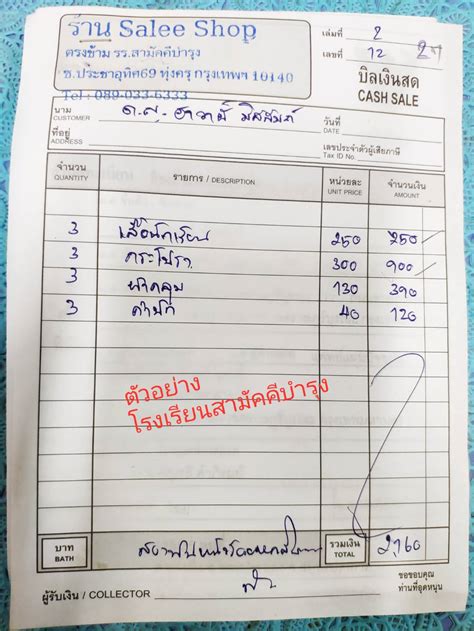 ร้าน Salee Shop
ตรงข้าม รร.สามัคคีบำรุง
ซ.ประชาอุทิศ69 ทุ่งครุ กรุงเทพฯ 10140
Tel : 089-033-6333
เล่มที่ 2
เลขที่ 12
บิลเงินสด
CASH SALE
นาม
CUSTOMER ด.ญ.
วันที่
DATE
ที่อยู่
ADDRESS
เลขประจำตัวผู้เสียภาษี
Tax ID No.
จำนวน รายการ / DESCRIPTION หน่วยละ จำนวนเงิน
QUANTITY UNIT PRICE AMOUNT
3 เสื้อนักเรียน 250 750
3 กระโปรง 300 900
3 ผ้าคลุม 130 390
3 40 120
ตัวอย่าง
โรงเรียนสามัคคีบำรุง
บาท รวมเงิน 2,160
BATH TOTAL
ผู้รับเงิน / COLLECTOR
ขอขอบคุณ
ท่านที่อุดหนุน